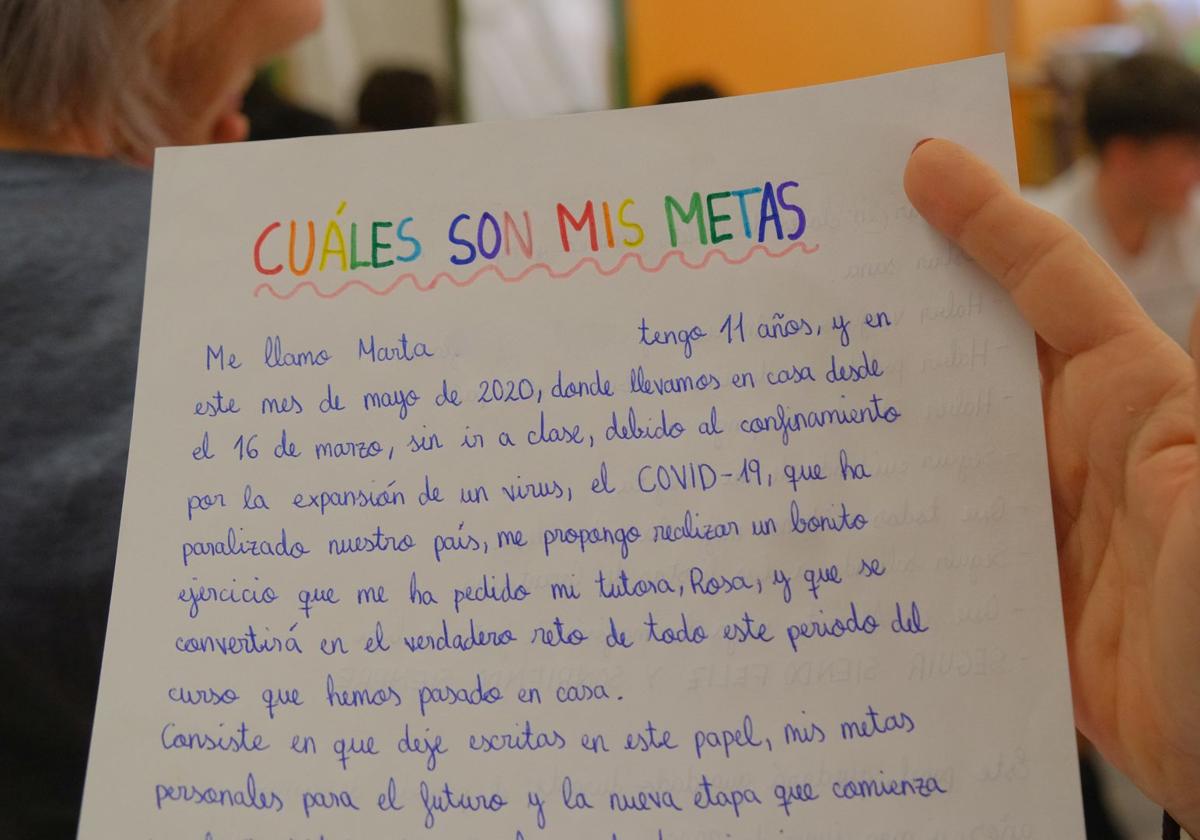 CUÁLES SON MIS METAS
Me llamo Marta tengo 11 años, y en
este mes de mayo de 2020, donde llevamos en casa desde
el 16 de marzo, sin ir a clase, debido al confinamiento
por la expansión de un virus, el COVID-19, que ha
paralizado nuestro país, me propongo realizar un bonito
ejercicio que me ha pedido mi tutora, Rosa, y que se
convertirá en el verdadero reto de todo este periodo del
curso que hemos pasado en casa.
Consiste en que deje escritas en este papel, mis metas
personales para el futuro y la nueva etapa que comienza